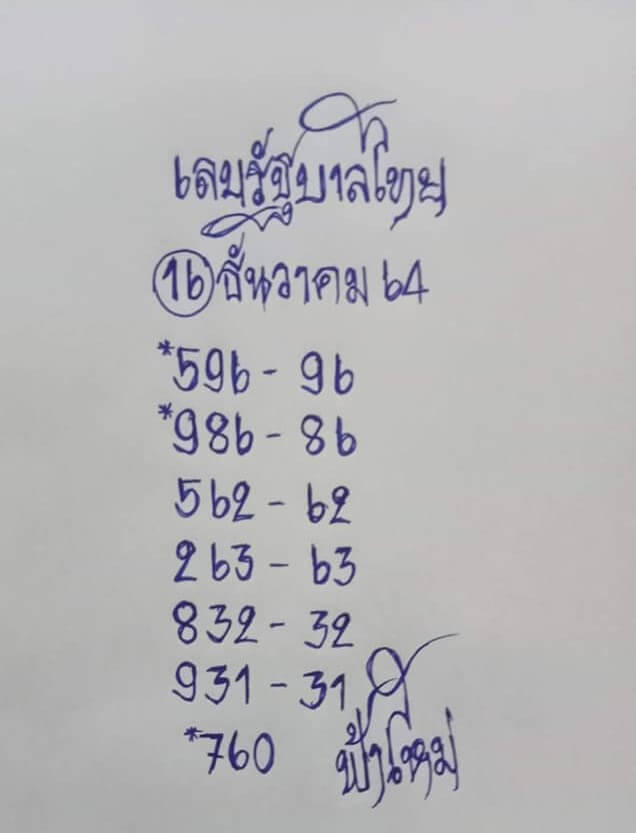 เลขรัฐบาลไทย
16 ธันวาคม 64
*596 - 96
*986 - 86
562 - 62
263 - 63
832 - 32
931 - 31
*760 ฟ้าใหม่